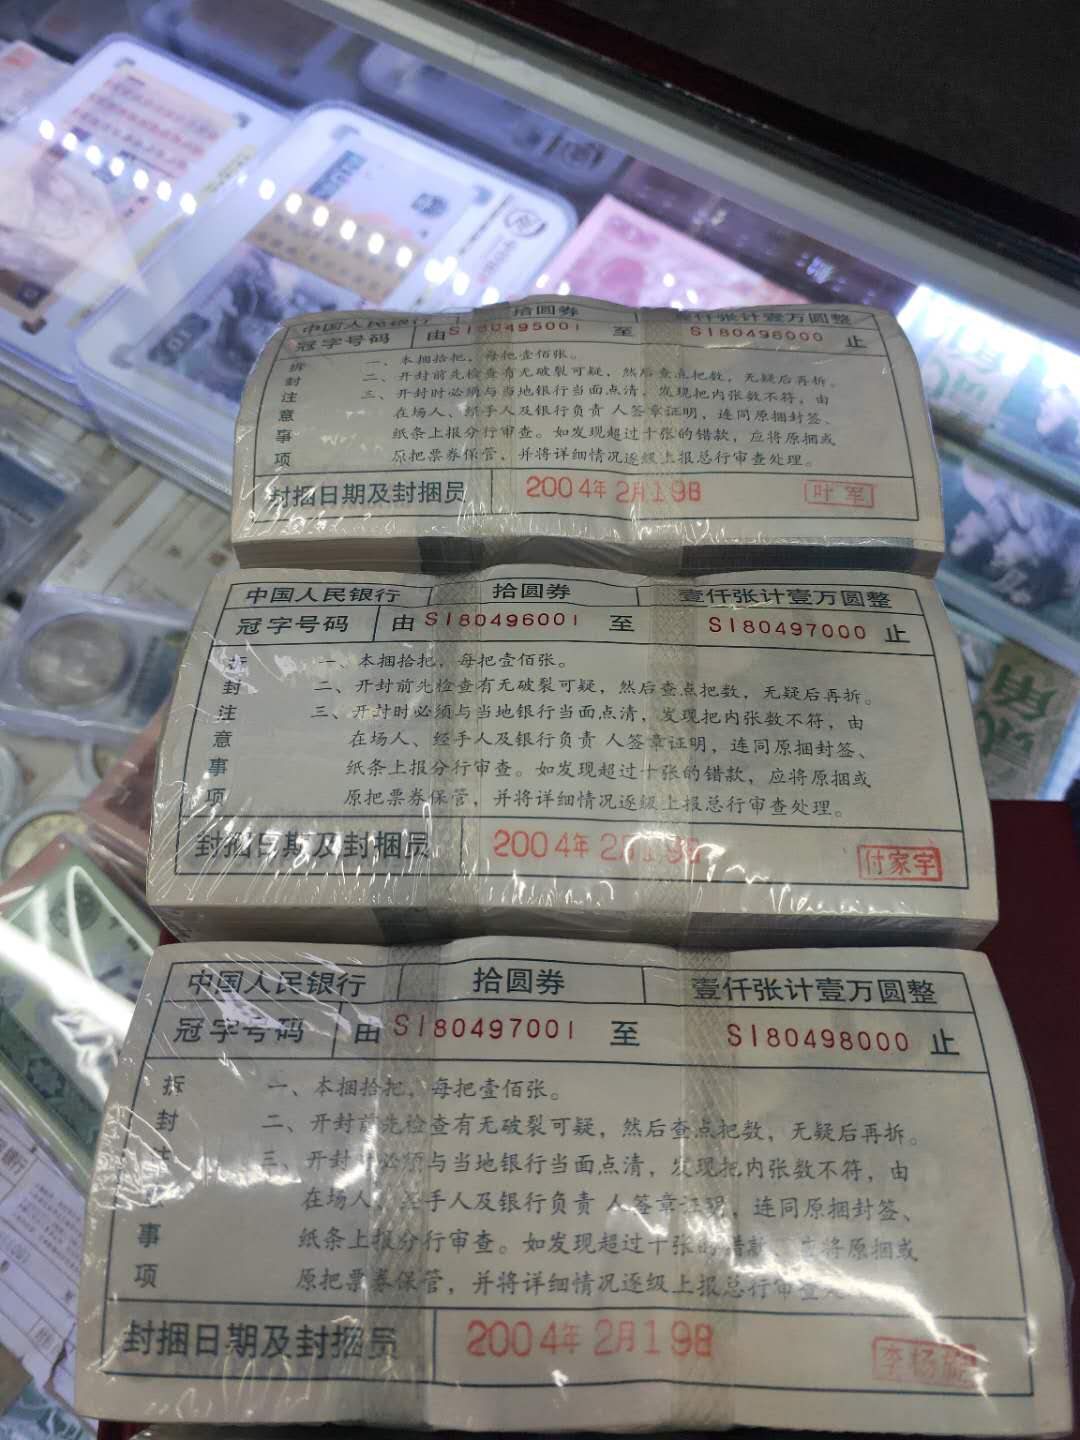 中国人民银行 拾圆券 壹仟张计壹万圆整
冠字号码 由SI80495001 至 SI80496000 止
拆封注意事项
一、本捆拾把,每把壹佰张。
二、开封前先检查有无破裂可疑,然后查点把数,无疑后再拆。
三、开封时必须与当地银行当面点清,发现把内张数不符,由
在场人、经手人及银行负责 人签章证明,连同原捆封签、
纸条上报分行审查。如发现超过十张的错款,应将原捆或
原把票券保管,并将详细情况逐级上报总行审查处理。
封捆日期及封捆员 2004年2月19日 叶军
中国人民银行 拾圆券 壹仟张计壹万圆整
冠字号码 由SI80496001 至 SI80497000 止
拆封注意事项
一、本捆拾把,每把壹佰张。
二、开封前先检查有无破裂可疑,然后查点把数,无疑后再拆。
三、开封时必须与当地银行当面点清,发现把内张数不符,由
在场人、经手人及银行负责 人签章证明,连同原捆封签、
纸条上报分行审查。如发现超过十张的错款,应将原捆或
原把票券保管,并将详细情况逐级上报总行审查处理。
封捆日期及封捆员 2004年2月19日 付家宇
中国人民银行 拾圆券 壹仟张计壹万圆整
冠字号码 由SI80497001 至 SI80498000 止
拆封注意事项
一、本捆拾把,每把壹佰张。
二、开封前先检查有无破裂可疑,然后查点把数,无疑后再拆。
三、开封时必须与当地银行当面点清,发现把内张数不符,由
在场人、经手人及银行负责 人签章证明,连同原捆封签、
纸条上报分行审查。如发现超过十张的错款,应将原捆或
原把票券保管,并将详细情况逐级上报总行审查
封捆日期及封捆员 2004年2月19日 李杨